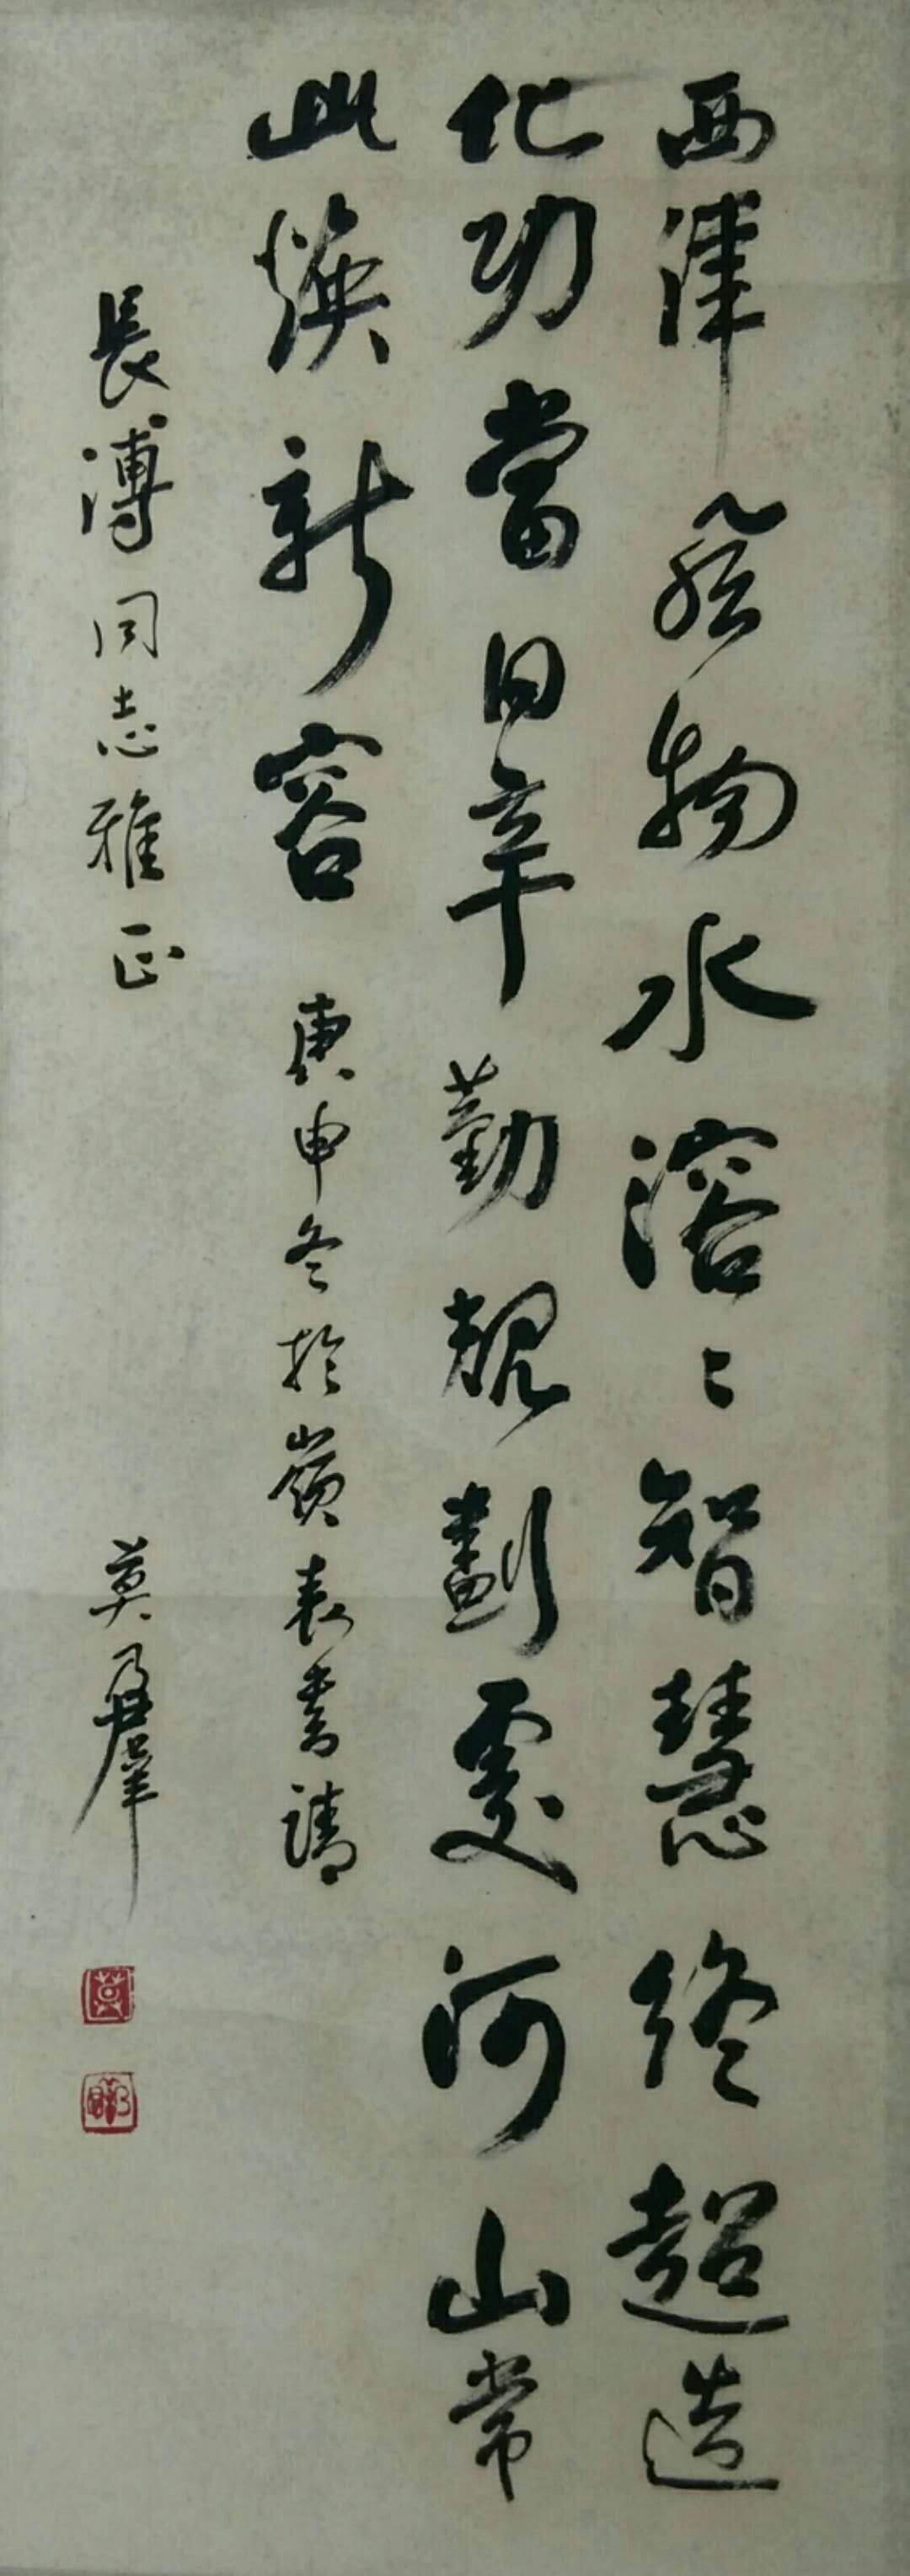 西津物水溶〻智慧終超造
化功當日辛勤規劃處河山常
此煥新容 庚申冬於嶺表書請
長溥同志雅正 莫乃羣
莫